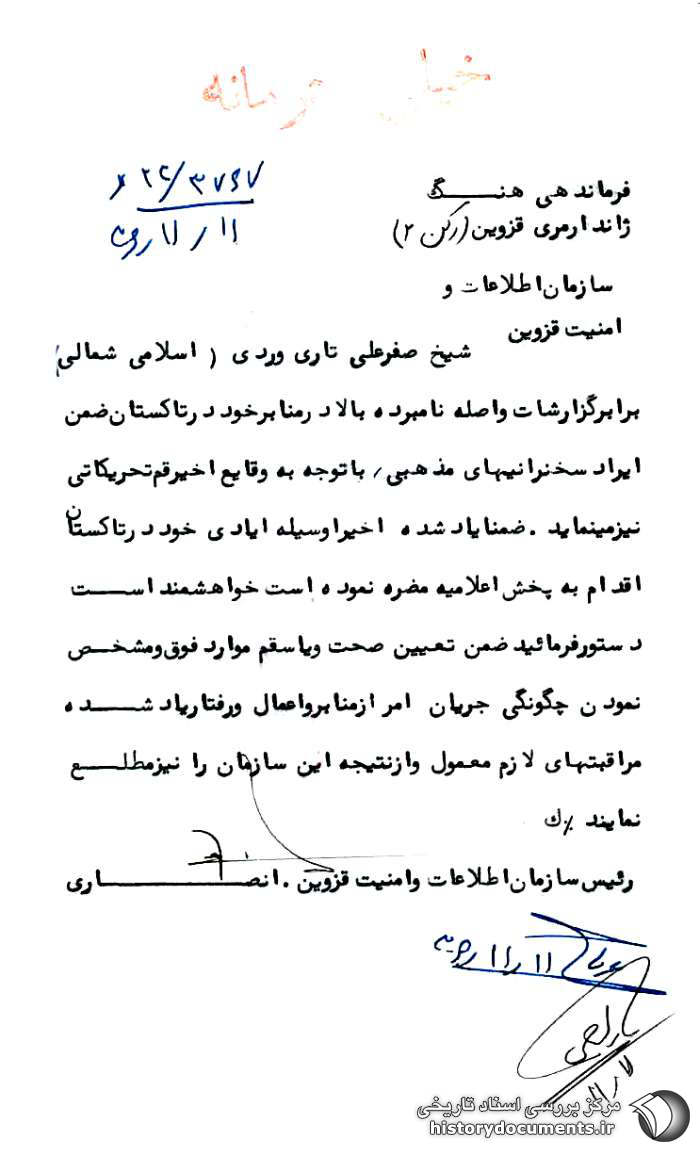 خیلی محرمانه
فرماندهی هنـــگ
ژاندارمری قزوین (رکن ۲)
۲۲/۳۷۶۷
سازمان اطلاعات و
امنیت قزوین
شیخ صفرعلی تاری وردی ( اسلامی شمالی)
برابر گزارشات واصله نامبرده بالا در منابر خود در تاکستان ضمن
ایراد سخنرانیهای مذهبی، با توجه به وقایع اخیر قم تحریکاتی
نیز مینماید . ضمنا یاد شده اخیرا وسیله ایادی خود در تاکستان
اقدام به پخش اعلامیه مضره نموده است خواهشمند اســـت
دستور فرمائید ضمن تعیین صحت و یا سقم موارد فوق و مشخص
نمودن چگونگی جریان امر از منابر و اعمال و رفتار یاد شـــده
مراقبتهای لازم معمول و از نتیجه این سازمان را نیز مطلـــع
نمایند ٪ك
رئیس سازمان اطلاعات و امنیت قزوین . انصـــــاری
مرکز بررسی اسناد تاریخی
historydocuments.ir